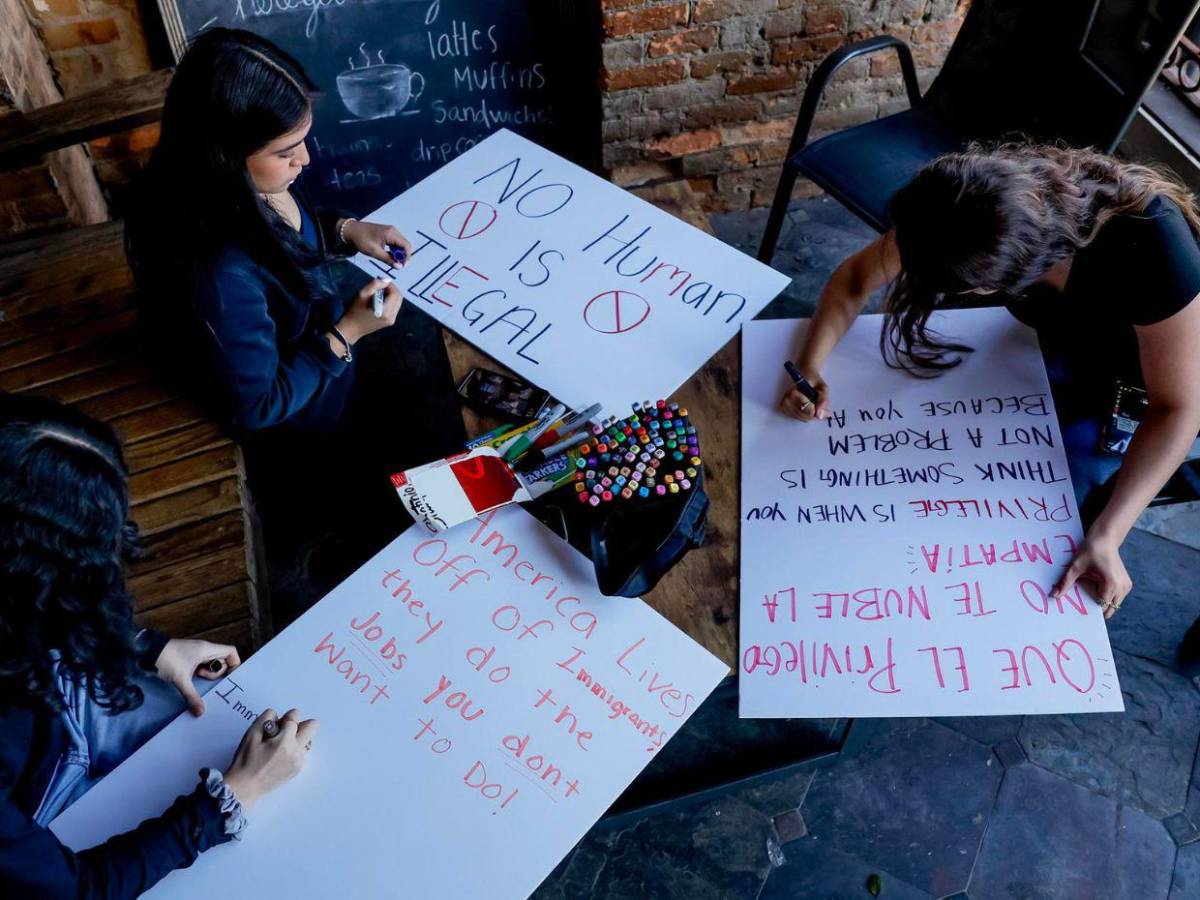 lattes
Muffins
Sandwiches
teas
drip
NO Human
IS
ILLEGAL
MARKERS
America Lives
Off Of Immigrants,
they do the
Jobs you dont
want to Do!
Imm
QUE EL PRIVILEGIO
NO TE NUBLE LA
EMPATÍA
PRIVILEGE IS WHEN YOU
THINK SOMETHING IS
NOT A PROBLEM
BECAUSE YOU A